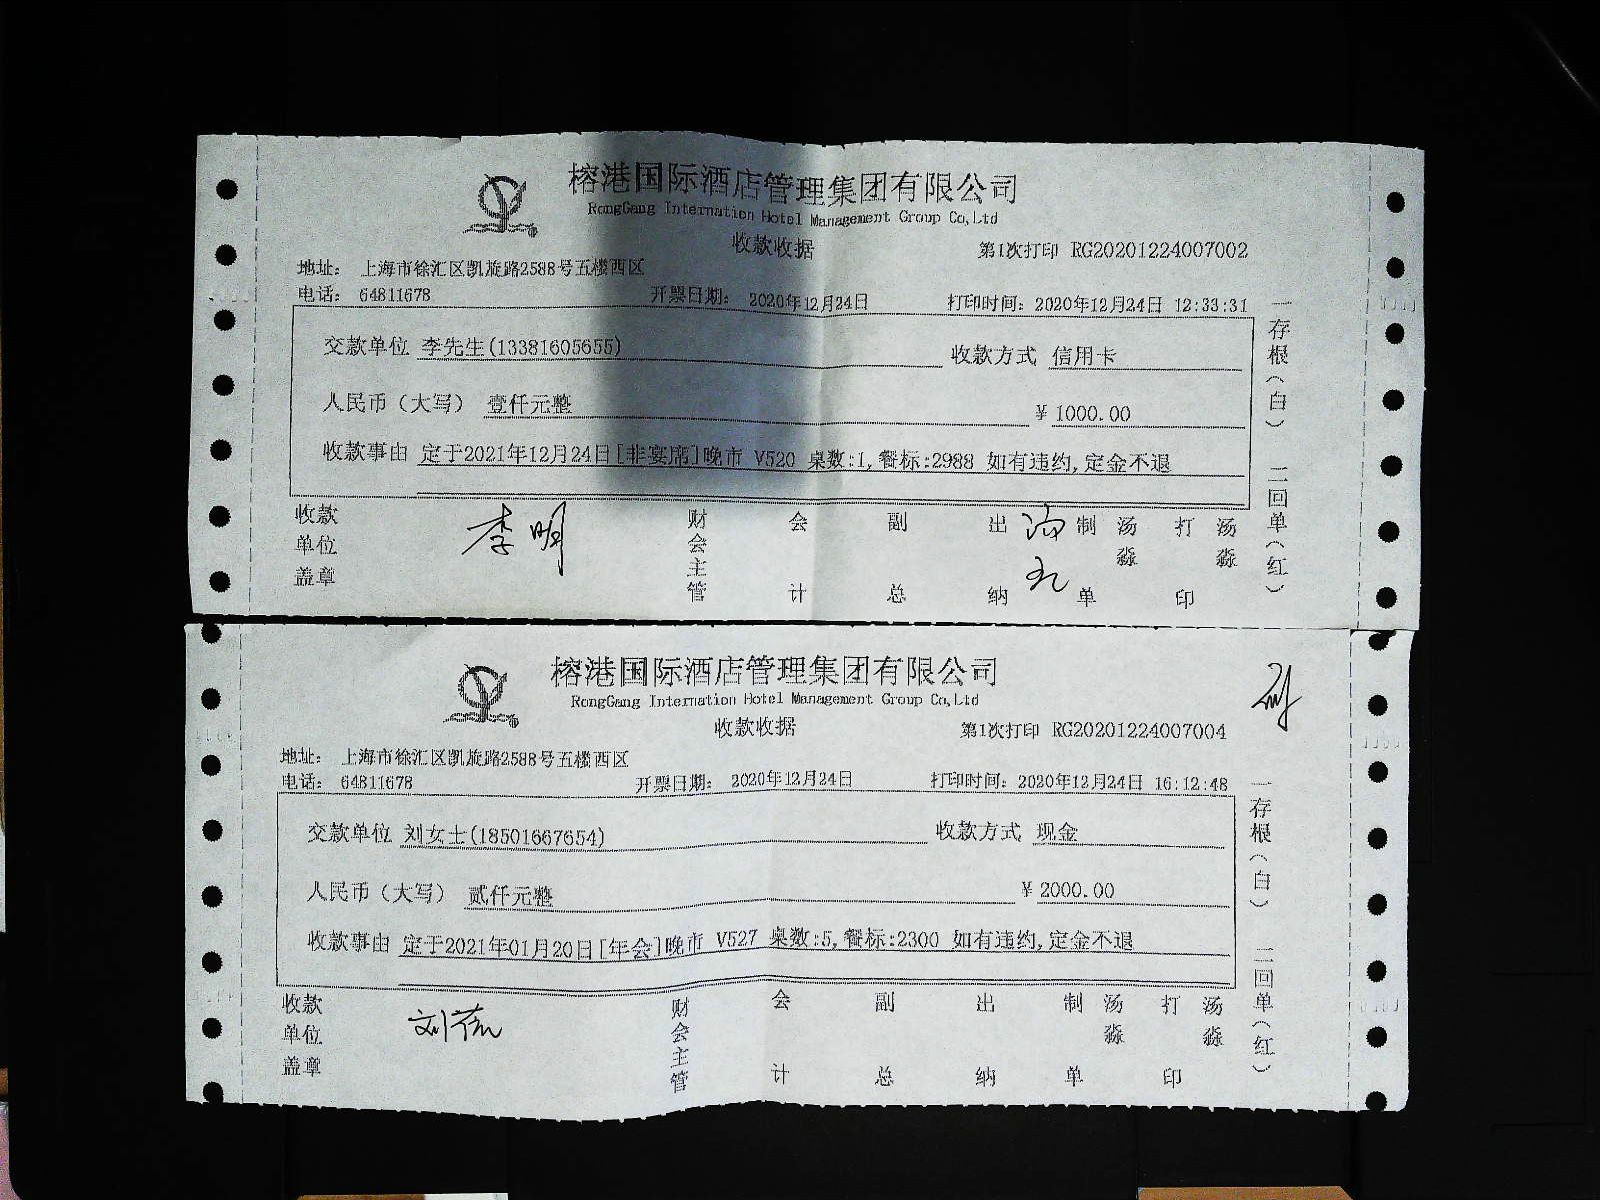 榕港国际酒店管理集团有限公司
RongGang Internation Hotel Management Group Co,Ltd
收款收据
第1次打印 RG20201224007002
地址: 上海市徐汇区凯旋路2588号五楼西区
电话: 64811678 开票日期: 2020年12月24日 打印时间: 2020年12月24日 12:33:31
交款单位 李先生(13381605655) 收款方式 信用卡
人民币（大写） 壹仟元整 ¥1000.00
收款事由 定于2021年12月24日[非宴席]晚市 V520 桌数:1,餐标:2988 如有违约,定金不退
收款单位盖章 李明 财会主管 会计 副总 出纳 制单 汤淼 打印 汤淼
一存根（白） 二回单（红）
榕港国际酒店管理集团有限公司
RongGang Internation Hotel Management Group Co,Ltd
收款收据
第1次打印 RG20201224007004
地址: 上海市徐汇区凯旋路2588号五楼西区
电话: 64811678 开票日期: 2020年12月24日 打印时间: 2020年12月24日 16:12:48
交款单位 刘女士(18501667654) 收款方式 现金
人民币（大写） 贰仟元整 ¥2000.00
收款事由 定于2021年01月20日[年会]晚市 V527 桌数:5,餐标:2300 如有违约,定金不退
收款单位盖章 财会主管 会计 副总 出纳 制单 汤淼 打印 汤淼
一存根（白） 二回单（红）